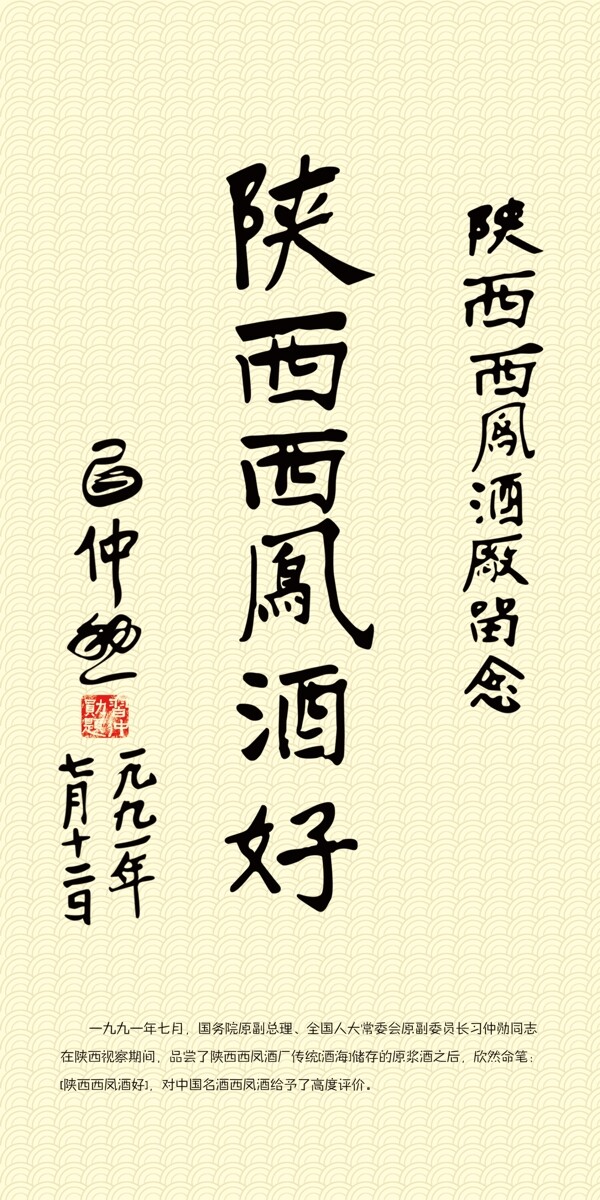 陕西西鳳酒廠留念
陕西西鳳酒好
習仲勋
習仲勛題
一九九一年
七月十二日
一九九一年七月，国务院原副总理、全国人大常委会原副委员长习仲勋同志
在陕西视察期间，品尝了陕西西凤酒厂传统[酒海]储存的原浆酒之后，欣然命笔：
[陕西西凤酒好]，对中国名酒西凤酒给予了高度评价。